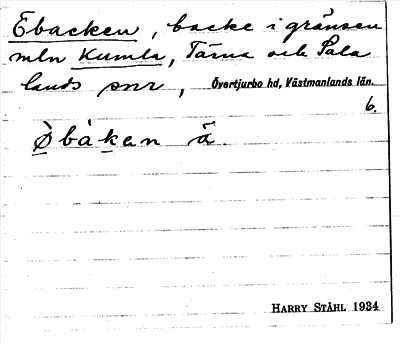 Ebacken, backe i gränsen
mln Kumla, Tärna och Sala
lands snr, Övertjurbo hd, Västmanlands län.
6.
Ø̱bàḵen ä̀
HARRY STÅHL 1934